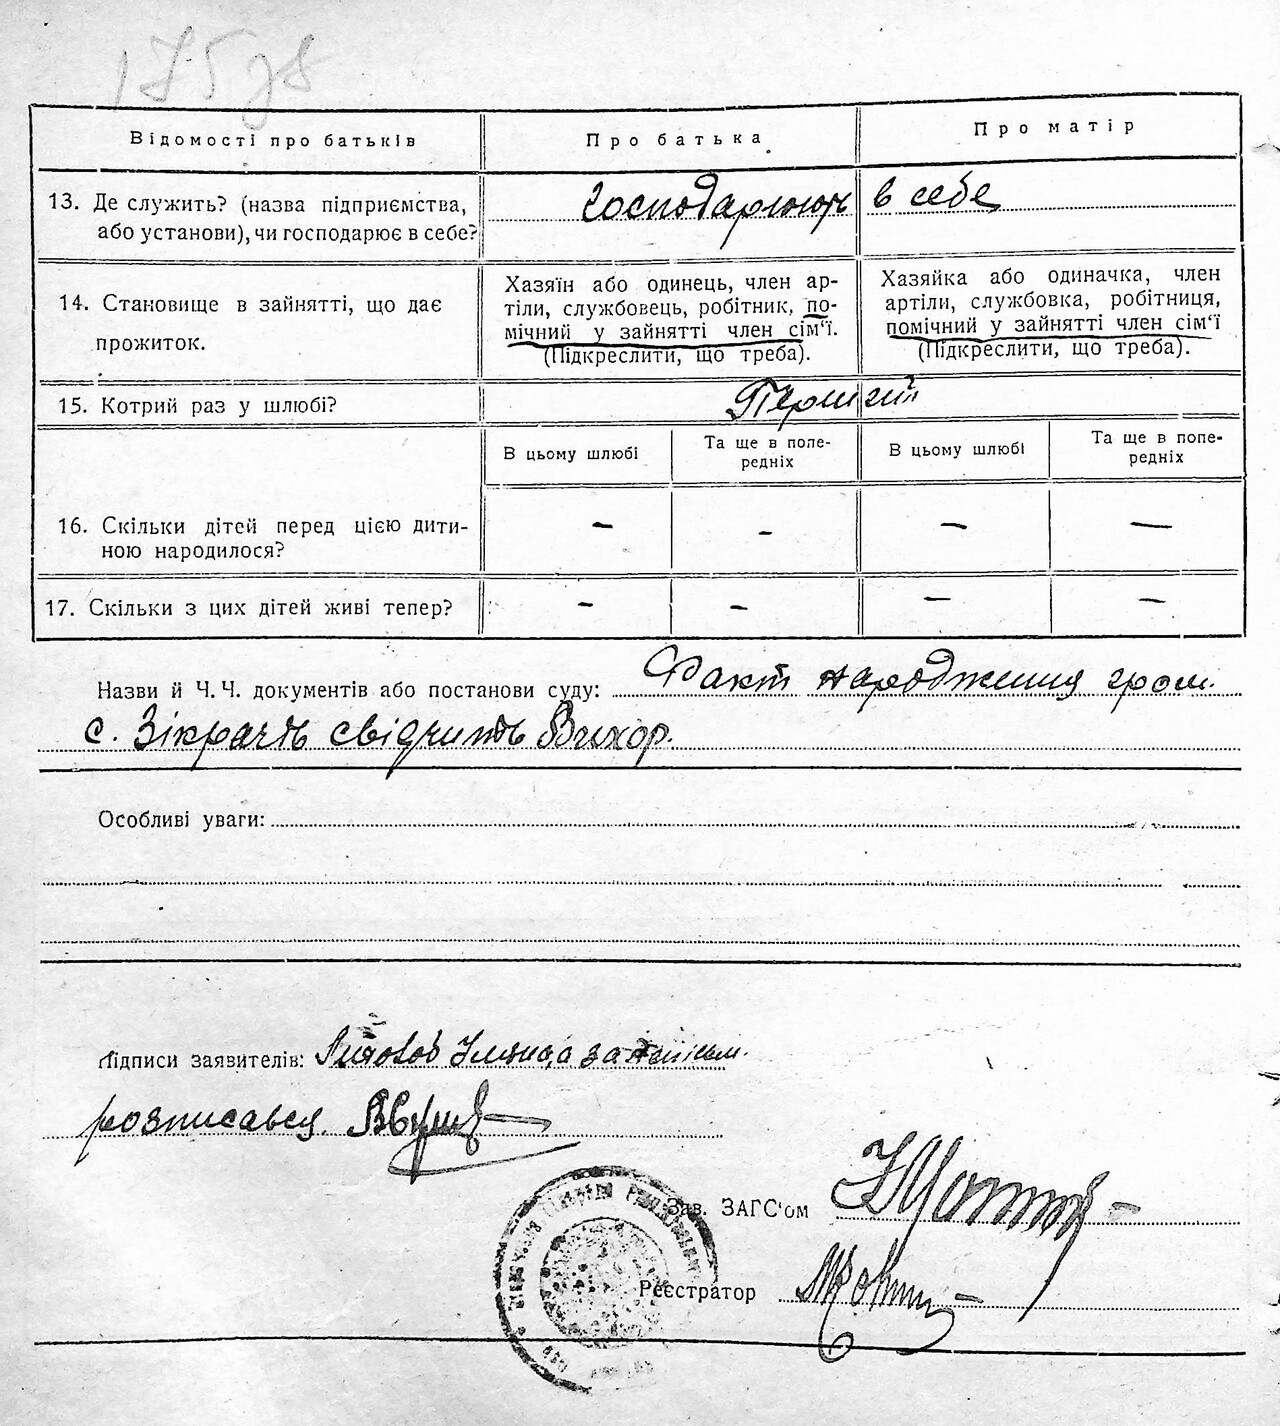 175 зв
Відомості про батьків
Про батька
Про матір
13. Де служить? (назва підприємства,
або установи), чи господарює в себе?
господарюють в себе
14. Становище в зайнятті, що дає
прожиток.
Хазяїн або одинець, член ар-
тіли, службовець, робітник, по-
мічний у зайнятті член сім'ї.
(Підкреслити, що треба).
Хазяйка або одиначка, член
артіли, службовка, робітниця,
помічний у зайнятті член сім'ї
(Підкреслити, що треба).
15. Котрий раз у шлюбі?
Перший
В цьому шлюбі
Та ще в попе-
редніх
В цьому шлюбі
Та ще в попе-
редніх
16. Скільки дітей перед цією дити-
ною народилося?
– – – –
17. Скільки з цих дітей живі тепер?
– – – –
Назви й Ч. Ч. документів або постанови суду: Факт народження гром.
с. Зікрачь свідчить Вихор.
Особливі уваги:
Підписи заявителів:
розписався
Зав. ЗАГС'ом
Реєстратор